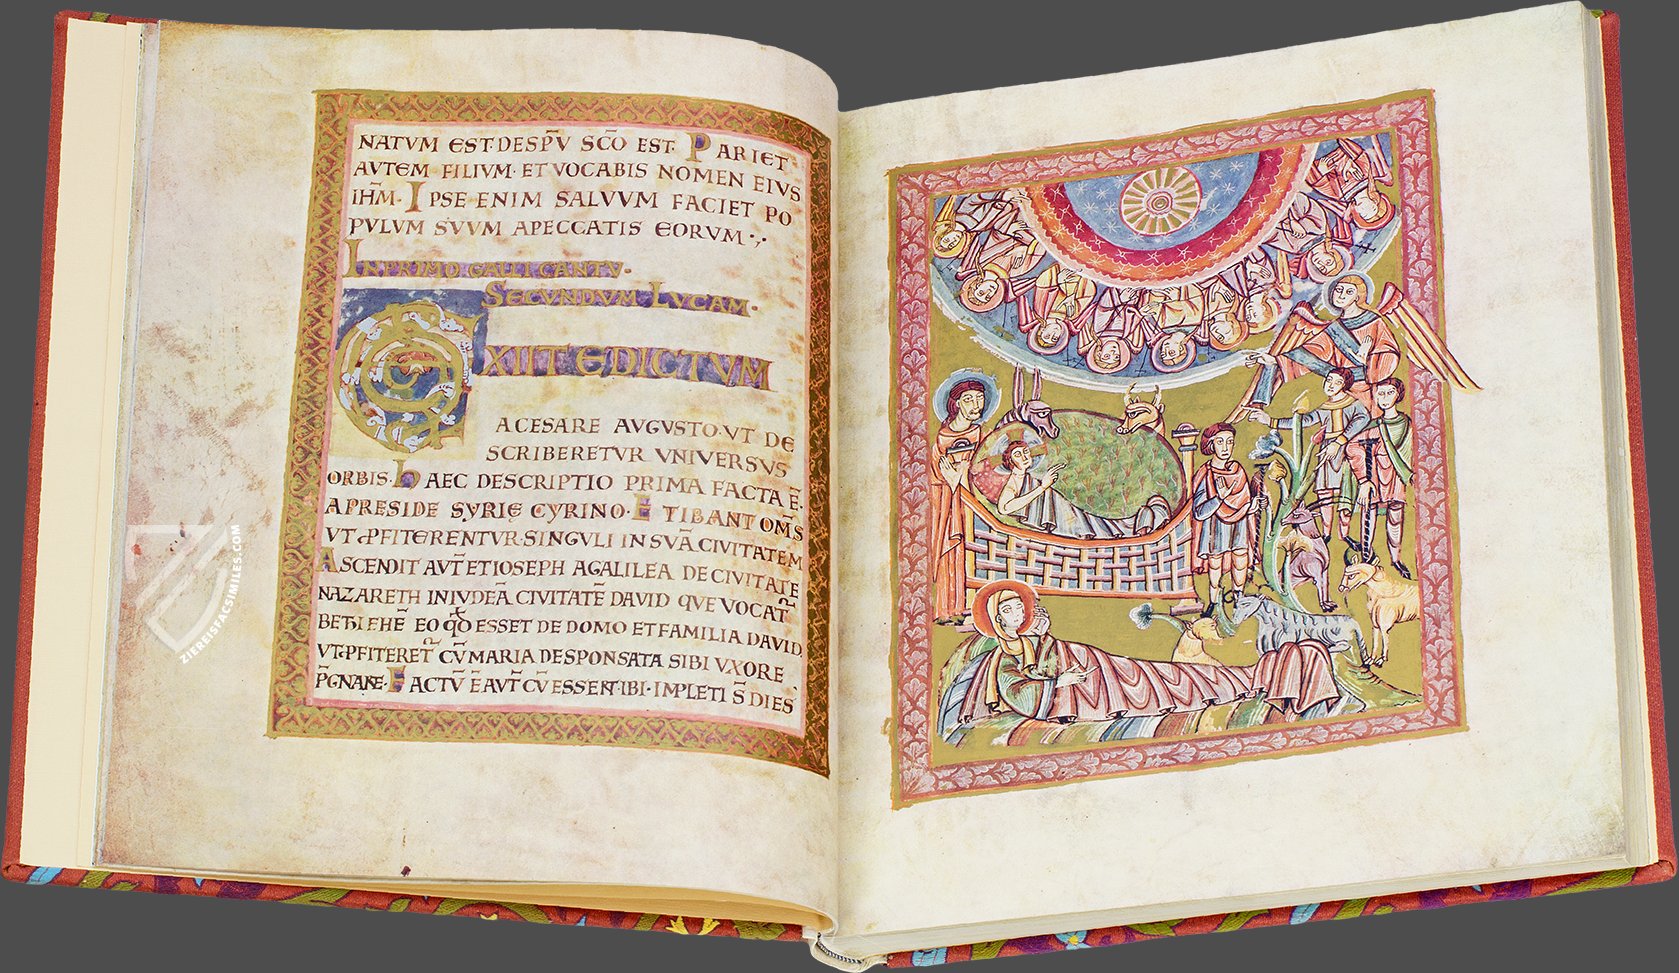 NATVM EST·DESPV̄ SC̄O EST· PARIET
AVTEM FILIVM· ET VOCABIS NOMEN EIVS
IHM̄· IPSE ENIM SALVVM FACIET PO
PVLVM SVVM APECCATIS EORVM·
INPRIMO GALLI CANTV·
SECVNDVM LVCAM·
EXIIT EDICTVM
ACESARE AVGVSTO·VT DE
SCRIBERETVR VNIVERSVS
ORBIS· HAEC DESCRIPTIO PRIMA FACTA Ē·
APRESIDE SYRIĘ CYRINO· ETIBANT OM̄S
VT PFITERENTVR·SINGVLI IN SVĀ CIVITATEM
ASCENDIT AVT̄ ET IOSEPH AGALILEA DECIVITATE
NAZARETH INIVDEĀ CIVITATĒ DAVID QVE VOCAT̄
BETHLEHĒ EO QD̄ ESSET DE DOMO ET FAMILIA DAVID,
VT PFITERET̄ CV̄ MARIA DESPONSATA SIBI VXORE
P̄GNATE· FACTV̄ Ē AVT̄ CV̄ ESSENT·IBI· IMPLETI S̄ DIES
ZIEREISFACSIMILES.COM